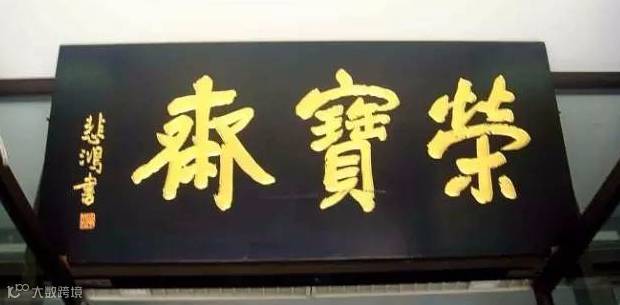 榮寶齋
悲鴻書
大数跨境